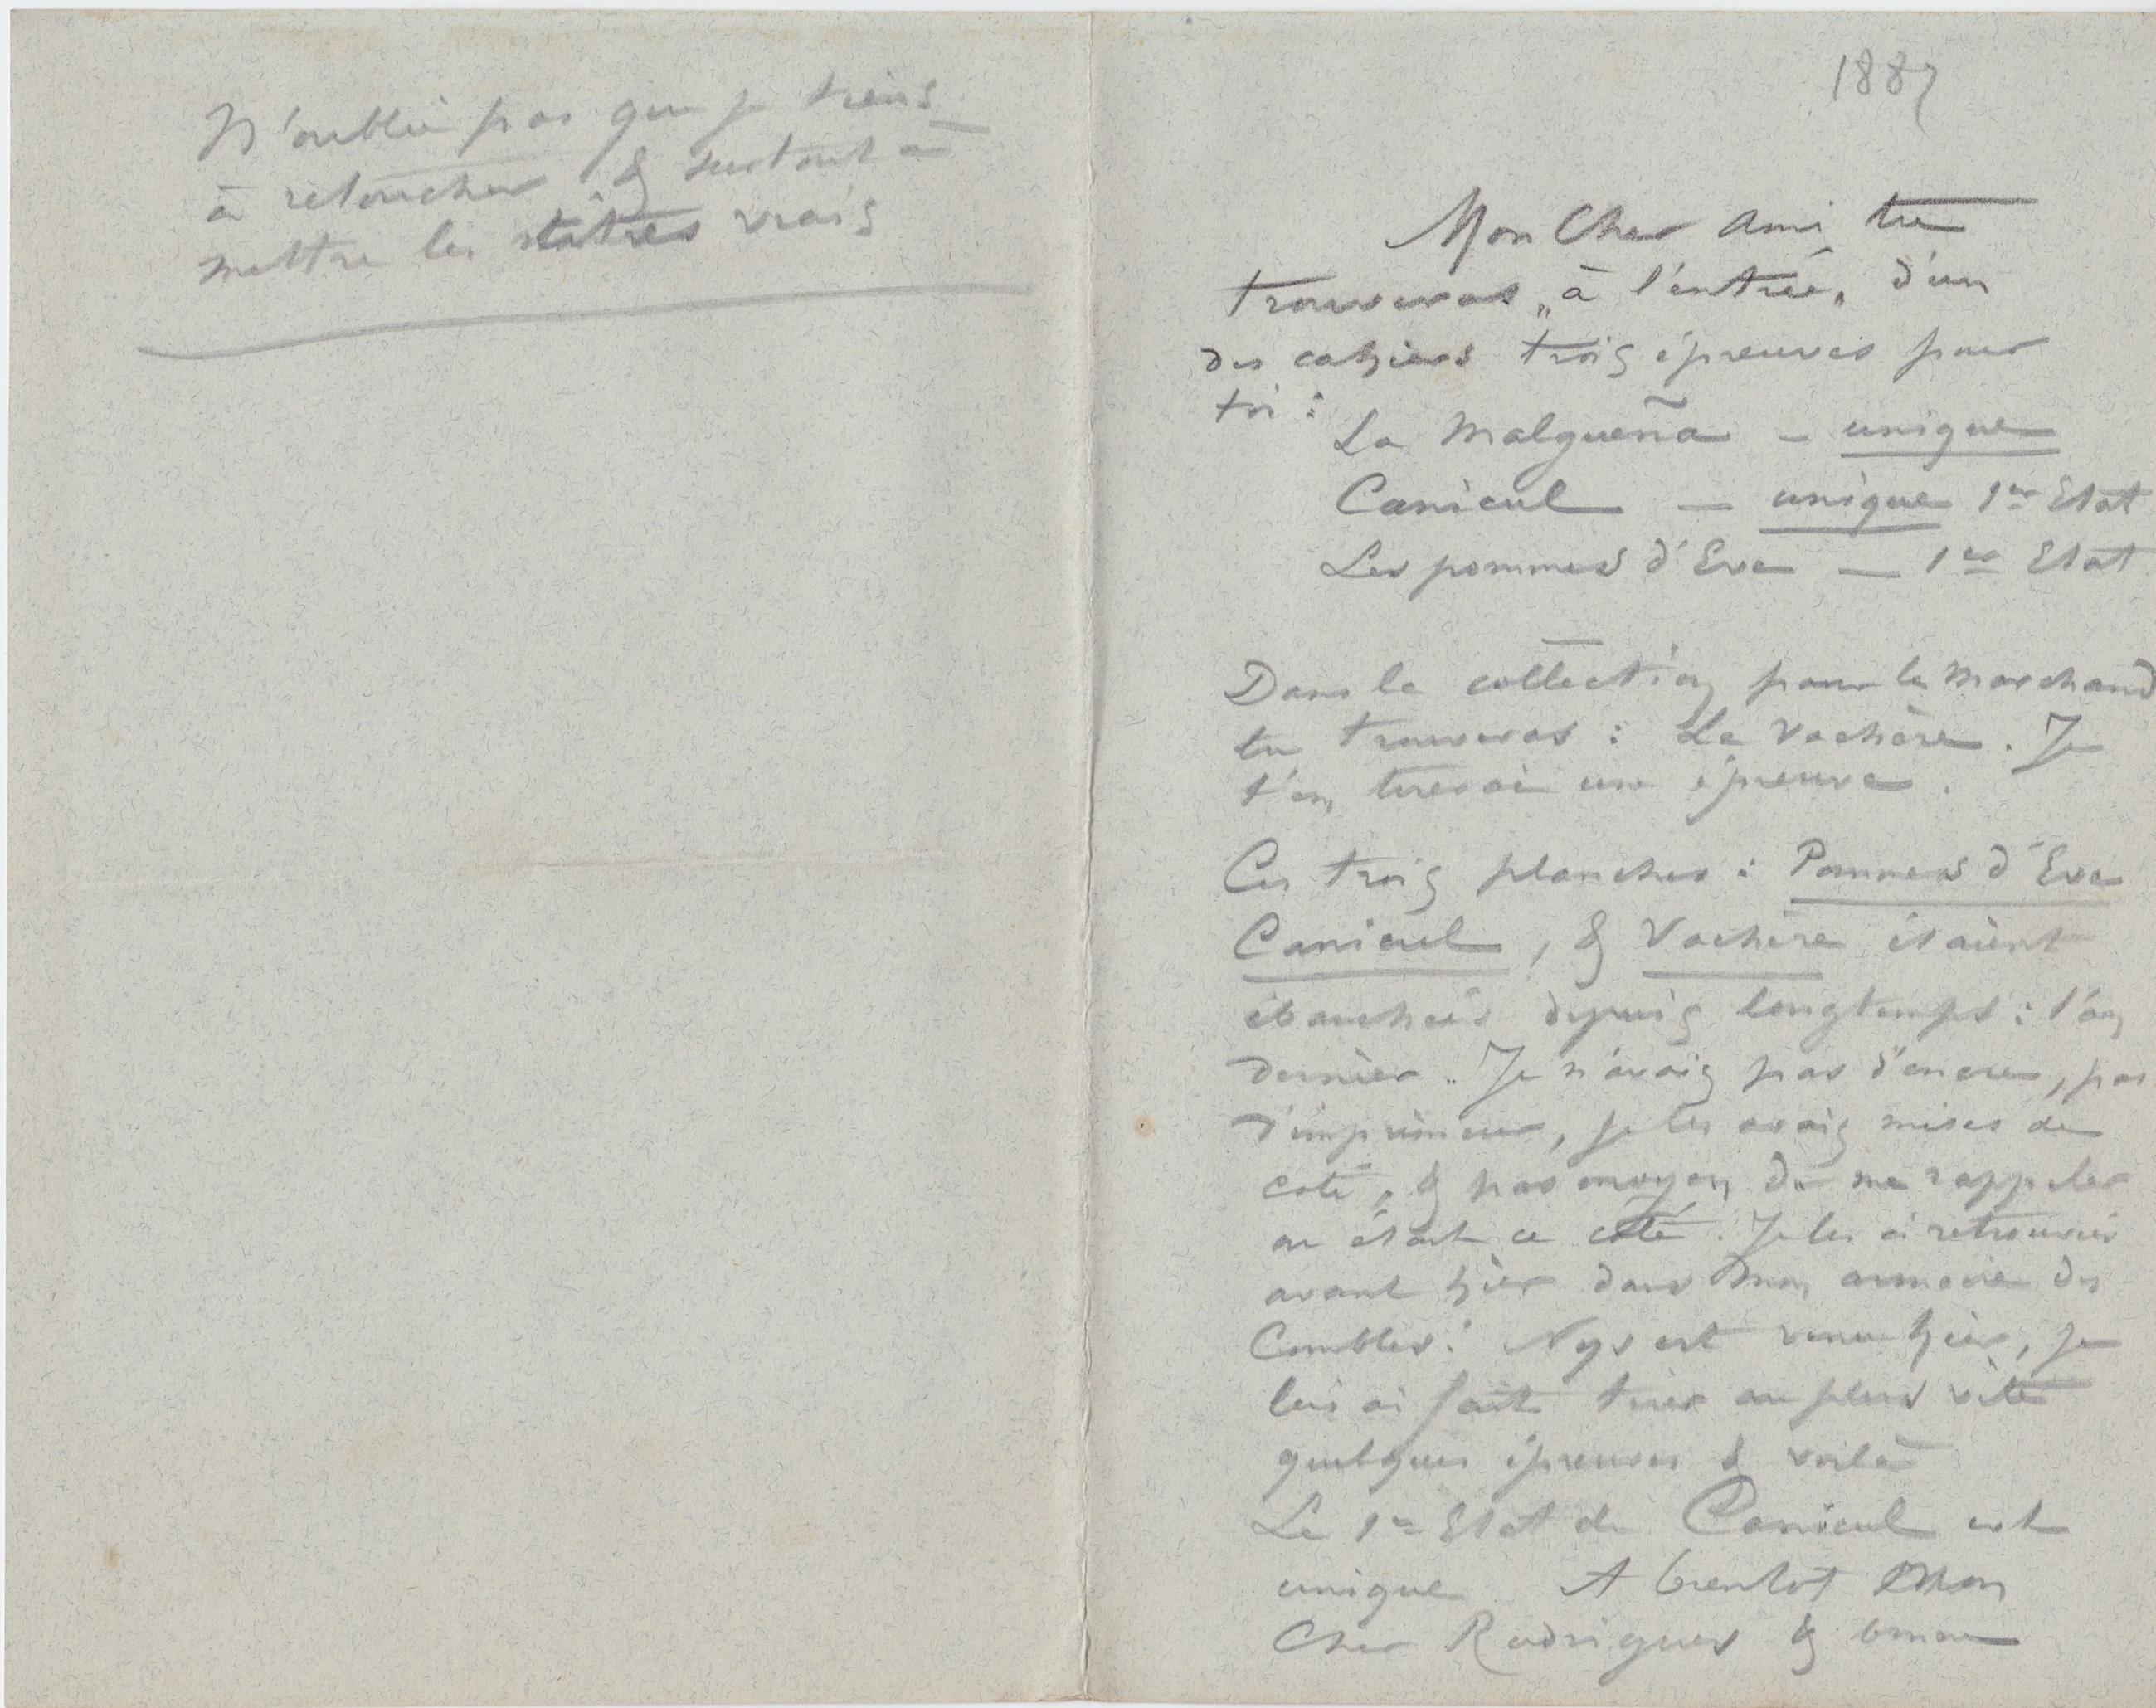 N'oublie pas que je tiens
à retoucher & surtout à
mettre les titres vrais
1887
Mon Cher ami tu
trouveras „à l'entrée„ d'un
des cahiers trois épreuves pour
toi :
La Malgueña – unique
Canicul — unique 1er Etat
Les pommes d'Eve — 1er Etat
Dans la collection pour le marchand
tu trouveras : La Vachère. Je
t'en tirerai une épreuve.
Ces trois planches : Pommes d'Eve
Canicul, & Vachère étaient
ébauchées depuis longtemps : l'an
dernier. Je n'avais pas d'encre, pas
d'imprimeur, je les avais mises de
coté, & pas moyen de me rappeler
ou était ce coté. Je les ai retrouvées
avant hier dans mon armoire des
Combles. Nys est venu hier, je
lui ai fait tirer au plus vite
quelques épreuves & voilà
Le 1er Etat de Canicul est
unique A bientot Mon
Cher Rodrigues & bonne